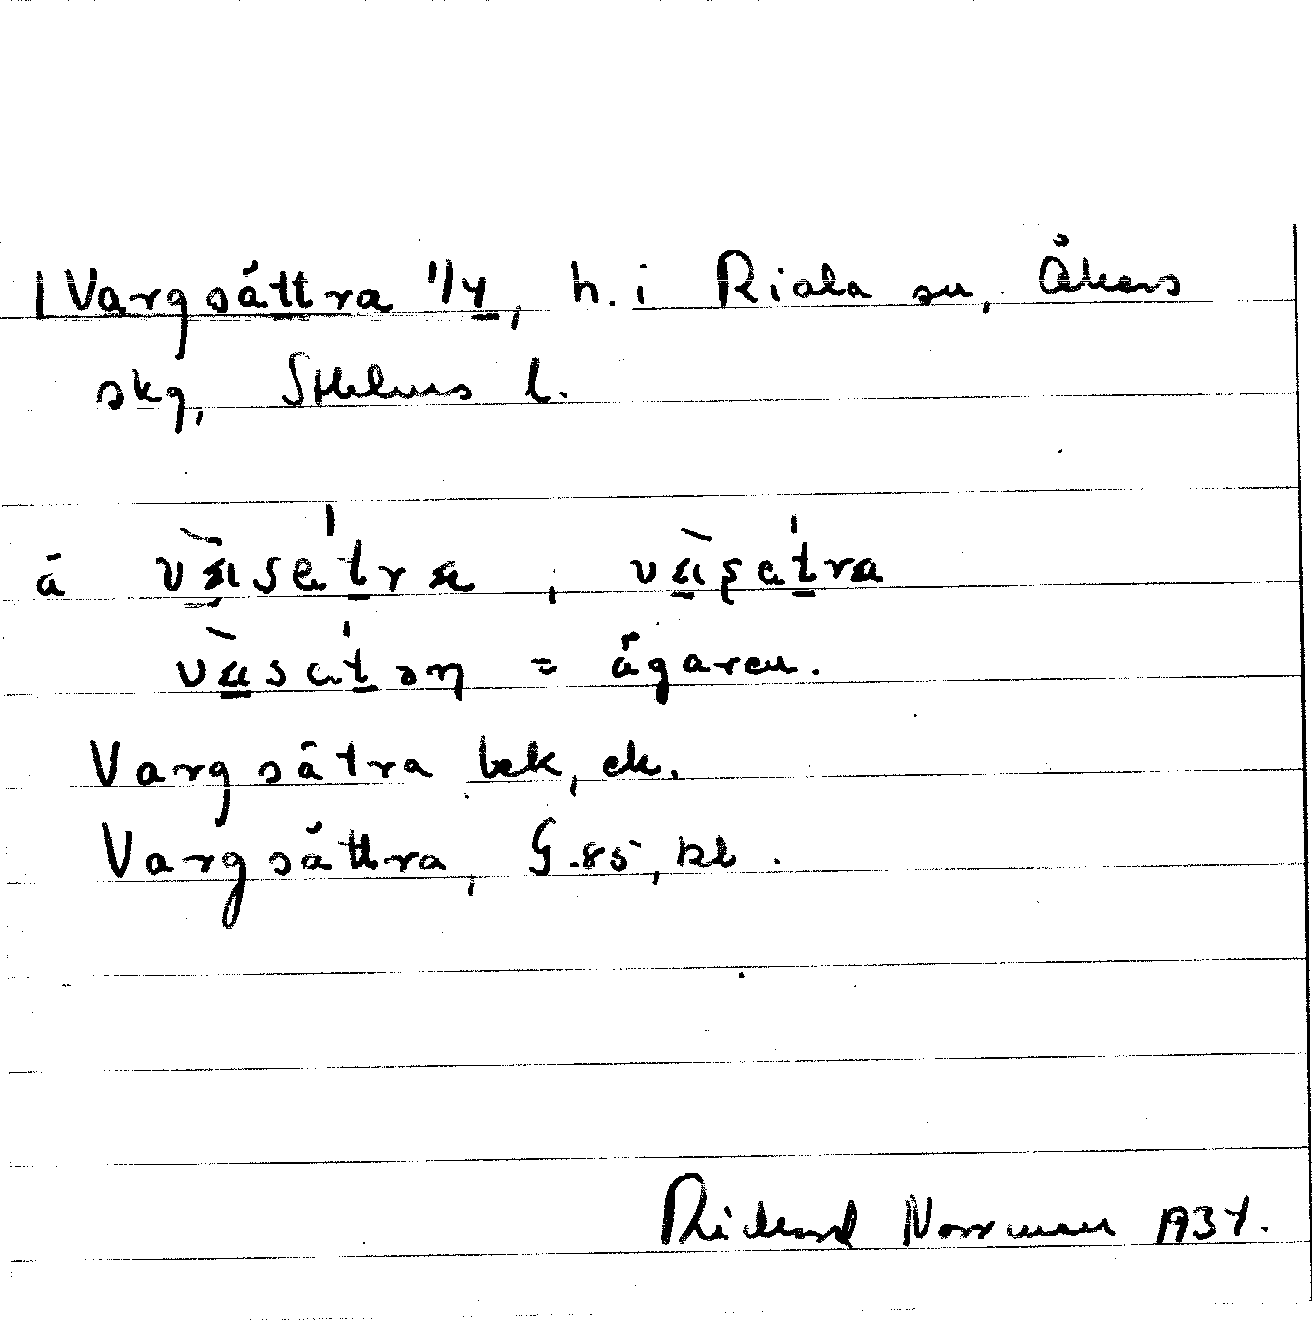 Vargsättra 1/4, h. i Riala sn, Åkers
skg, Sthlms l.
å vàsátra, vàsátra
vàsátən = ägaren.
Vargsätra bek, ek.
Vargsättra, G.85, kb.
Richard Norrman 1934.